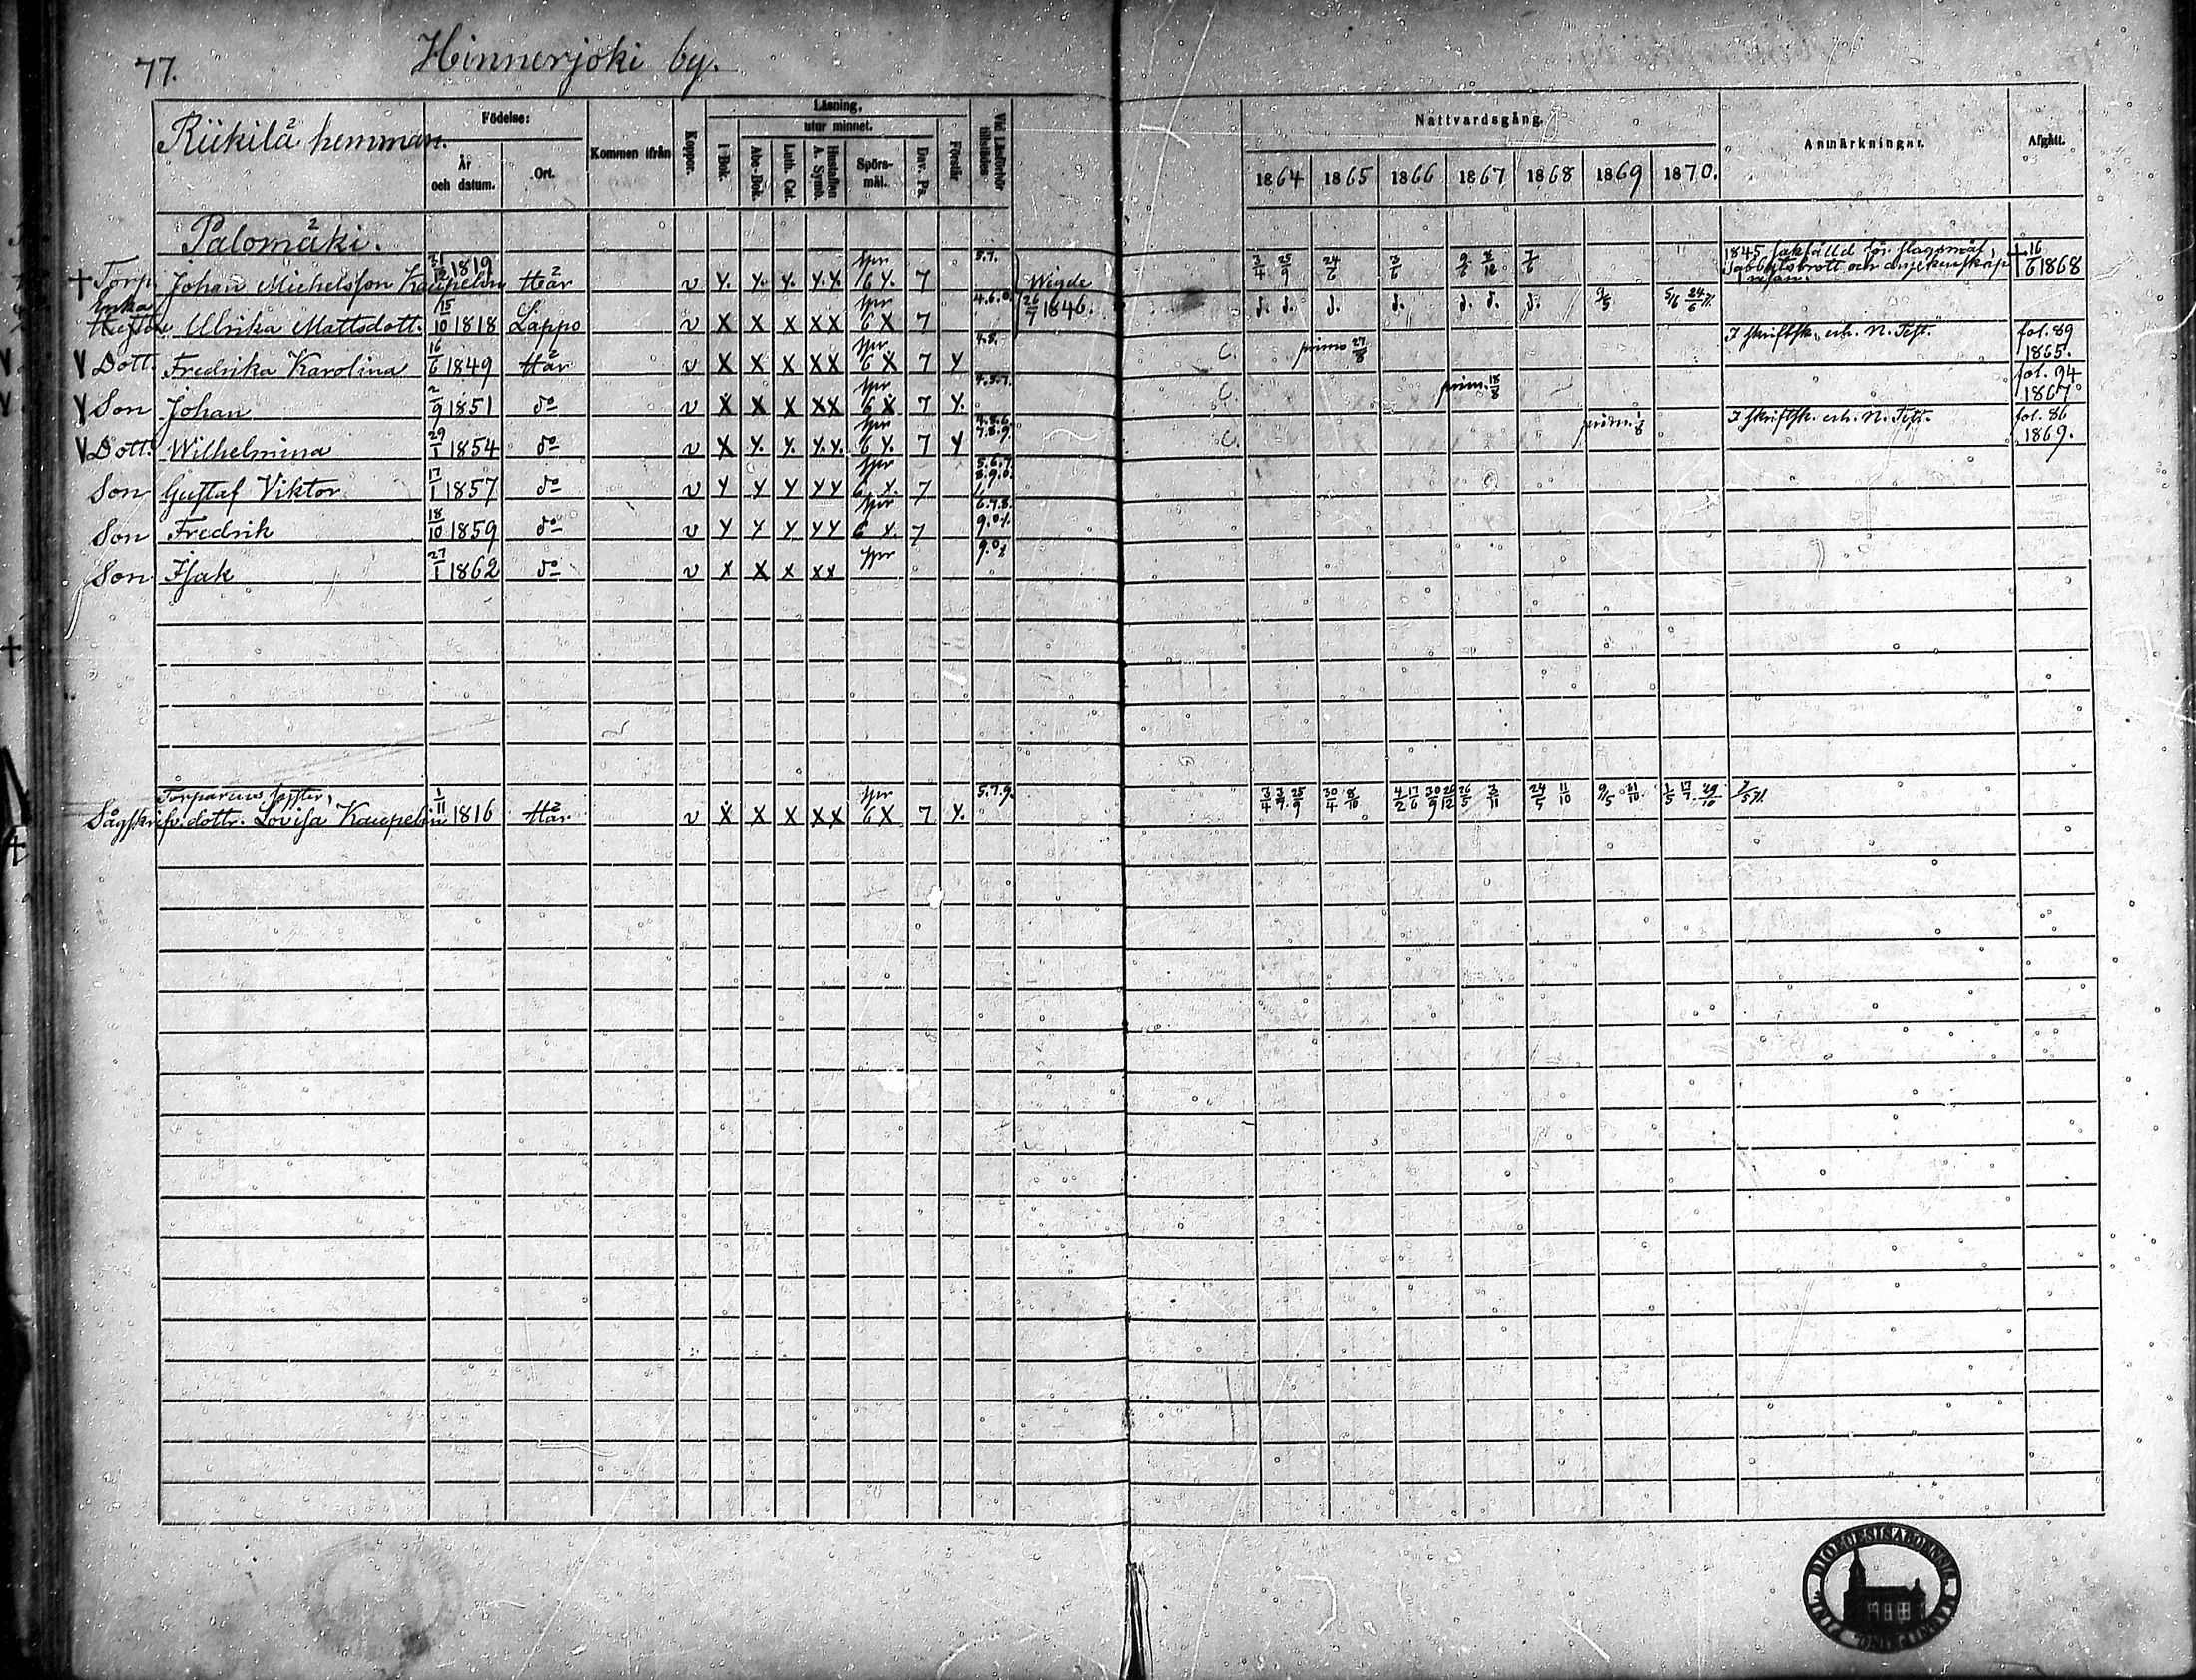 77.
Hinnerjoki by.
Riikilä hemman.
Födelse:
År och datum.
Ort.
Kommen ifrån
Koppor.
Läsning,
utur minnet.
I Bok.
Abc-Bok.
Luth. Cat.
Hustaflan A. Symb.
Spörsmål.
Dav. Ps.
Förstår
Vid Läsförhör tillstädes
Nattvardsgång.
1864 1865 1866 1867 1868 1869 1870.
Anmärkningar.
Afgått.
Palomäki.
+ Torp. Johan Michelsson Kaupelin 31/12 1819 Här v Y. Y. Y. Y. Y. spr 6 Y. 7 5.7. Wigde 26/7 1846. 3/4 25/9 24/6 3/6 1845 sakfälld för slagsmål, Sabbatsbrott och dryckenskap + 16/6 1868
Enka Hustru Ulrika Mattsdott. 15/10 1818 Lappo v X X X X X spr 6 X 7 4.6.0. d. d. d. d. d. d. d. 5/6 24/6
V Dott. Fredrika Karolina 16/6 1849 Här v X X X X X spr 6 X 7 Y 4.8. C. primo 27/8 I skriftsk. erh. N. Test. fol. 89 1865.
V Son Johan 2/9 1851 do v X X X X X spr 6 X 7 Y. 4.5.7. C. prim. 18/8 fol. 94 1867
V Dott. Wilhelmina 29/1 1854 do v X Y. Y. Y. Y. spr 6 Y. 7 Y 4.5.6. 7.8.9. C. prim. I skriftsk. erh. N. Test. fol. 86 1869.
Son Gustaf Viktor 17/1 1857 do v Y Y Y Y Y spr 6 Y. 7 5.6.7. 8.9.0.
Son Fredrik 18/10 1859 do v Y Y Y Y Y spr 6 Y. 7 6.7.8.
Son Isak 27/1 1862 do v X X X X X spr
Torparens syster,
Lovisa Kaupelin 1/11 1816 Här v X X X X X spr 6 X 7 Y. 5.7.9. 3/4 25/9 30/4 8/10 4/2 17/6 30/9 26/12 26/5 3/11 24/5 11/10 9/5 1/5 29/10
DIOECESIS ABOENSIS